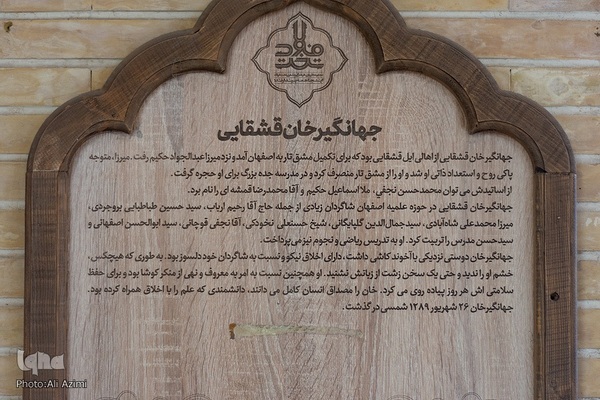 جهانگیرخان قشقایی
جهانگیرخان قشقایی از اهالی ایل قشقایی بود که برای تکمیل مشق تار به اصفهان آمد و نزد میرزا عبدالجواد حکیم رفت. میرزا، متوجه
پاکی روح و استعداد ذاتی او شد و او را از مشق تار منصرف کرد و در مدرسه جده بزرگ برای او حجره گرفت.
از اساتیدش می توان محمدحسن نجفی، ملا اسماعیل حکیم و آقا محمدرضا قمشه ای را نام برد.
جهانگیرخان قشقایی در حوزه علمیه اصفهان شاگردان زیادی از جمله حاج آقا رحیم ارباب، سید حسین طباطبایی بروجردی،
میرزا محمدعلی شاه‌آبادی، سیدجمال‌الدین گلپایگانی، شیخ حسنعلی نخودکی، آقا نجفی قوچانی، سید ابوالحسن اصفهانی و
سیدحسن مدرس را تربیت کرد. او به تدریس ریاضی و نجوم نیز می‌پرداخت.
جهانگیرخان دوستی نزدیکی با آخوند کاشی داشت، دارای اخلاق نیکو و نسبت به شاگردان خود دلسوز بود. به طوری که هیچکس،
خشم او را ندید و حتی یک سخن زشت از زبانش نشنید. او همچنین نسبت به امر به معروف و نهی از منکر کوشا بود و برای حفظ
سلامتی اش هر روز پیاده روی می کرد. خان را مصداق انسان کامل می دانند، دانشمندی که علم را با اخلاق همراه کرده بود.
جهانگیرخان ۲۶ شهریور ۱۲۸۹ شمسی در گذشت.
iqna
Photo: Ali Azimi